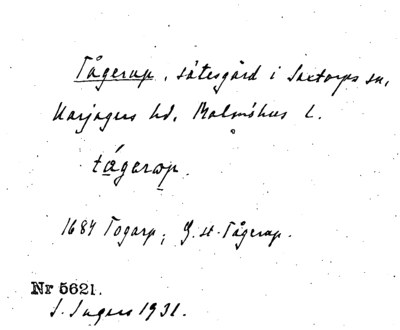 Tågerup, sätesgård i Saxtorps sn,
Harjagers hd, Malmöhus l.
tágarop.
1684 Togarp; G. st. Tågerup.
Nr 5621.
S. Ingers 1931.